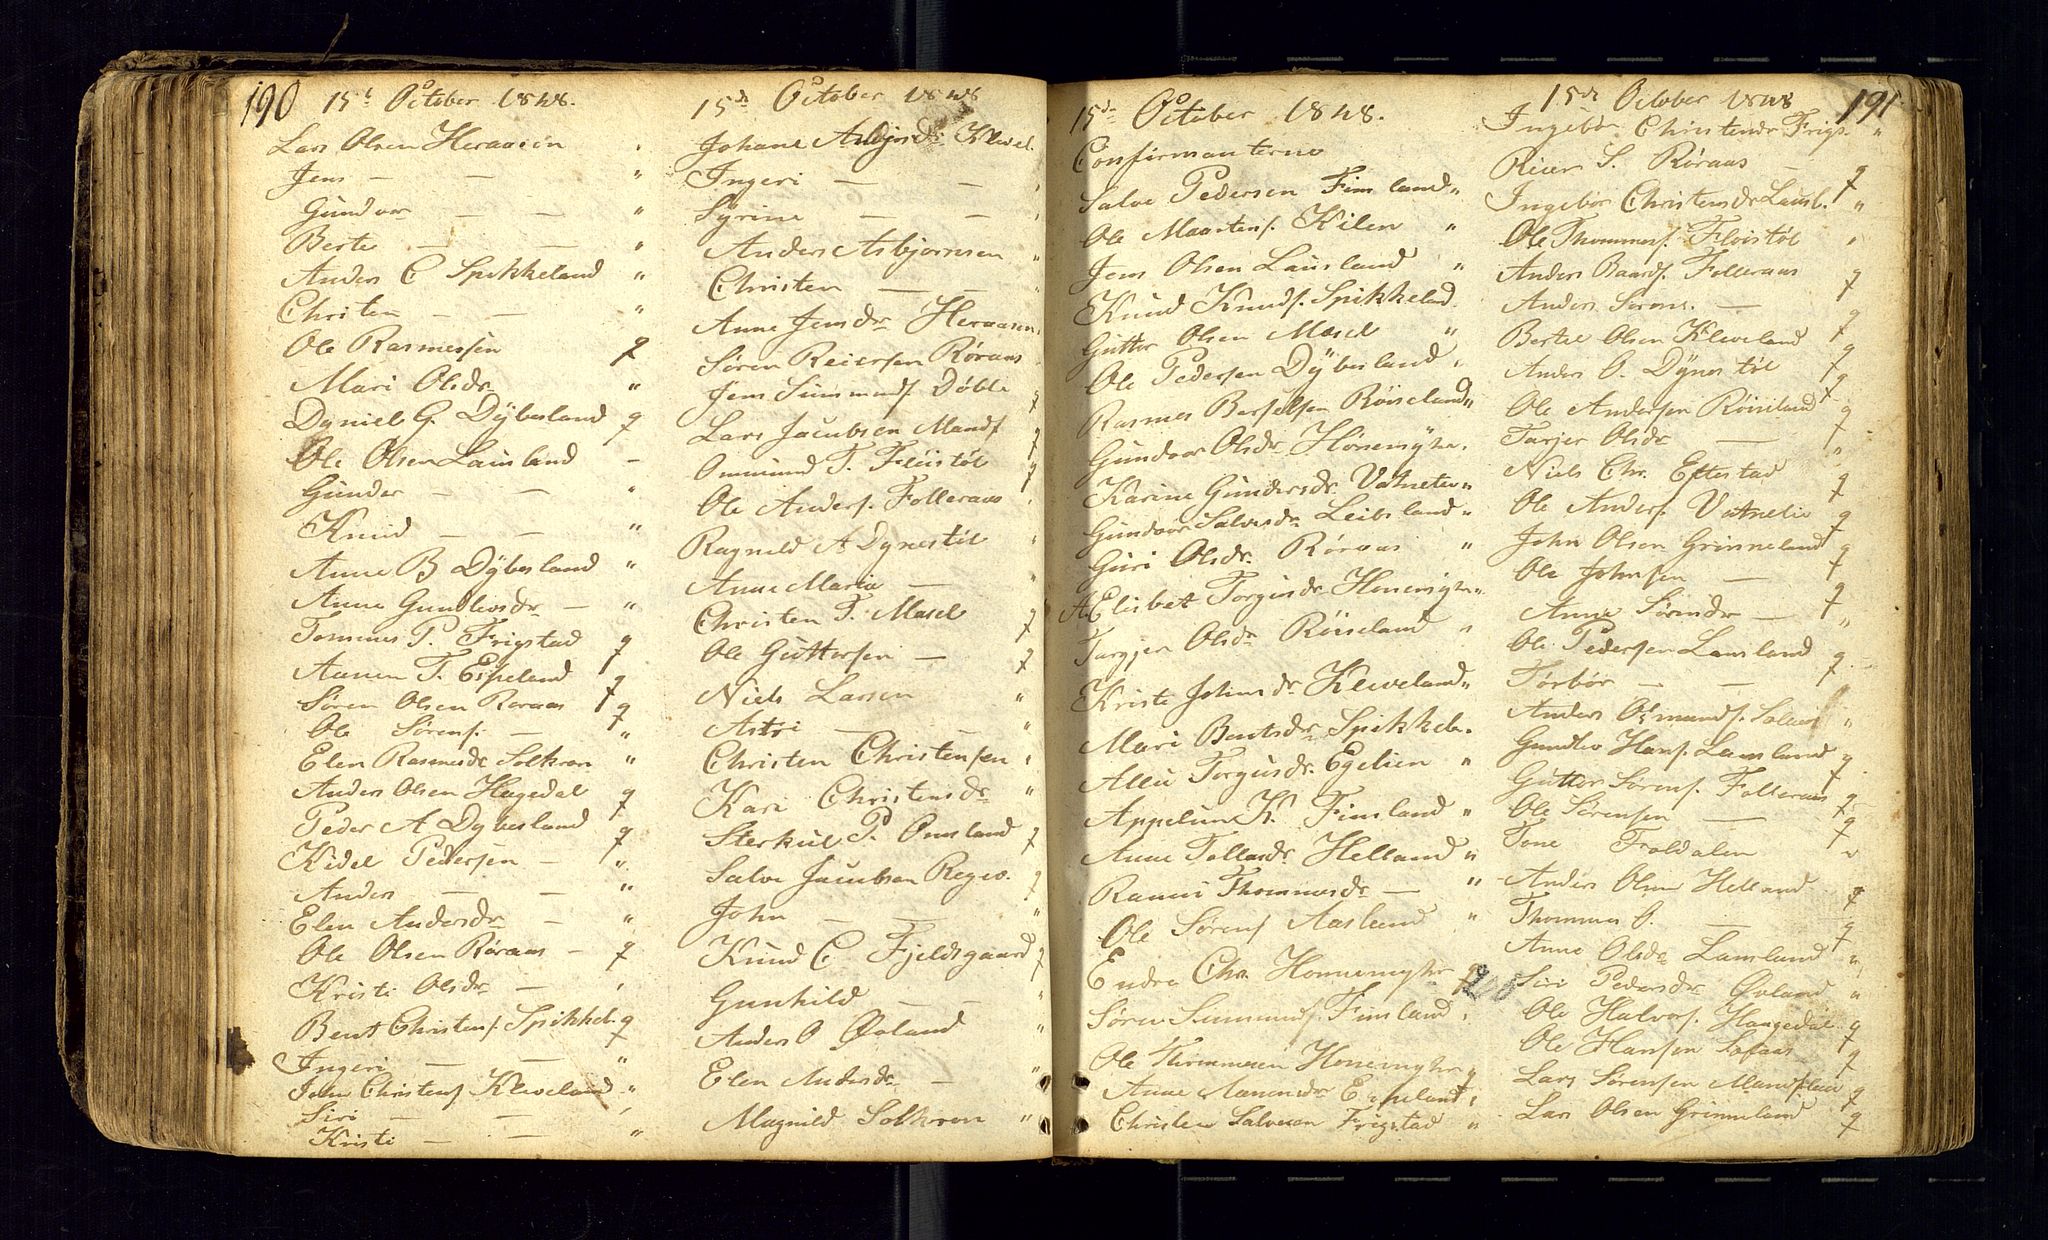 190 15t October 1848.
Lars Olsen Heraasen "
Jens — — "
Gundvor — — "
Berte — — "
Anders C Spikkeland "
Christen — — "
Ole Rasmussen g
Mari Olsdr "
Dyniel G. Dÿbesland g
Ole Olsen Lausland —
Gunder — — "
Knud — — "
Anne B Dÿbesland "
Anne Gunlevsdr — "
Tommes P. Frigstad g
Aanen T. Eipeland g
Søren Olsen Røraas g
Ole Sørens. — "
Elen Rasmusdr Solkron "
Anders Olsen Hagedal g
Peder A Dybesland g
Kidel Pedersen — "
Anders — — "
Elen Andersdr — "
Ole Olsen Røraas — g
Kristi Olsdr — "
Bent Christens. Spikkel. g
Ingeri — — "
John Christens Kleveland "
Siri — — "
Kristi — — "
15de October 1848
Johane Asbjørsdr Klevel.
Ingeri — — "
Syrine — — "
Anders Asbjørnsen "
Christen — — "
Anne Jensdr Heraasen "
Søren Reiersen Røraas
Jens Simmunds. Døble g
Lars Jacobsen Mands g
Ommund T. Fløistøl g
Ole Anders. Folleraas "
Ragnild A Dynestøl "
Anne Maria — "
Christen T. Mosel g
Ole Guttorsen — g
Niels Larsen "
Astri — — "
Christen Christensen "
Kari Christensdr "
Sterkul P. Omsland g
Salve Jacobsen Regev. g
John — — "
Knud C Fjeldsgaard g
Gunhild — — "
Anders O Øvland "
Elen Andersdr — "
Magnild Solkron "
15de October 1848.
Confirmanterne
Salve Pedersen Fimland "
Ole Maartens. Kilen "
Jens Olsen Lausland "
Knud Knuds. Spikkeland.
Guttor Olsen Mosel "
Ole Pedersen Dÿbesland "
Rasmus Bertelsen Røiseland "
Gundvor Olsdr Honemyhr "
Karine Gundersdr Vatnetev "
Gundvor Salvesdr Leibsland "
Guri Olsdr Røraas "
Elisbet Torgusdr Honemyhr "
Targjer Olsdr Røiseland "
Kriste Johnsdr Kleveland "
Mari Bentsdr Spikkele.
Allu Torgusdr Egelien "
Appelun K. Fimland "
Anne Tollasdr Helland "
Thommasdr — "
Ole Sørens Aasland "
Endre Chr. Honnemyhr g
Søren Simmunds. Fimland "
Ole Honemyhr g
Anne Aanensdr Eipeland "
Christen Salvesen Frigstad "
15de October 1848 191
Ingebor Christensdr Frigs. "
Reier S. Røraas — g
Ingebor Christensdr Lausl. "
Ole Thommess. Fløistøl "
Anders Baards. Folleraas g
Anders Sørens. — g
Bertel Olsen Kleveland g
Anders O. Dÿnestøl g
Ole Andersen Røiseland g
Tarjer Olsdr — "
Niels Chr. Eftestad g
Ole Anders. Vatnetev g
John Olsen Grinneland g
Ole Johnsen — g
Anne Sørensdr — "
Ole Pedersen Lausland g
Torbor — —
Anders Osmunds. Solaas "
Gunlev Hans. Lausland g
Guttor Sørens. Folleraas g
Ole Sørensen — g
Tone Foldalen "
Anders Olsen Helland g
Thommes O. — g
Anne Olsdr Lausland "
Siri Pedersdr Øvland "
Ole Halvors. Haagedal g
Ole Hansen Solaas g
Lars Sørensen g
Lars Olsen Grinneland g